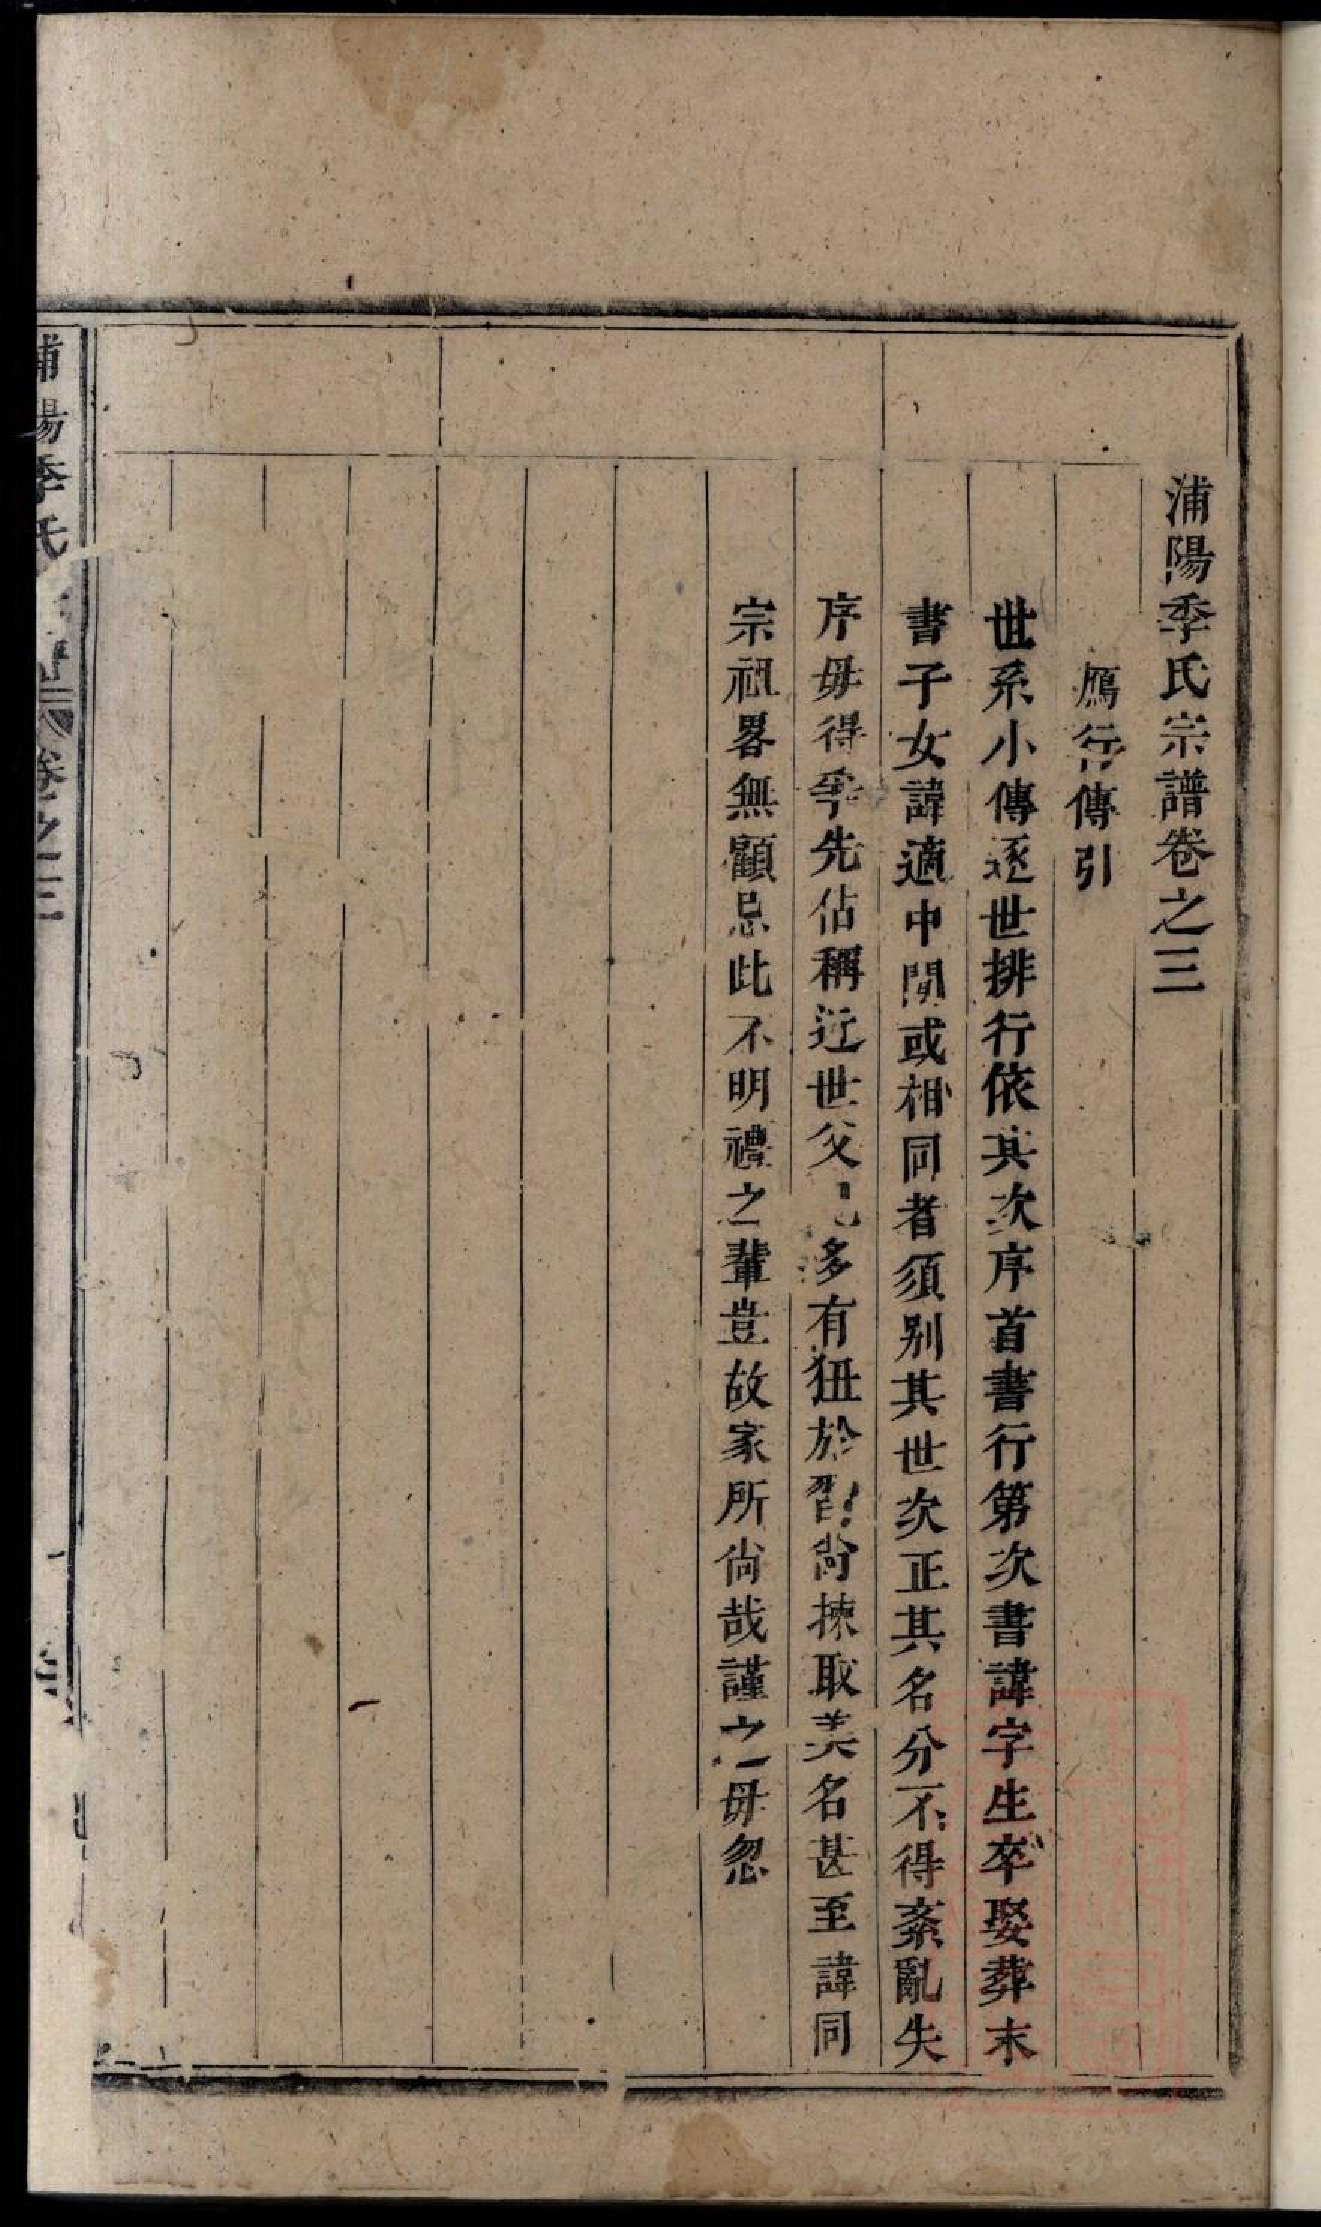 浦陽季氏宗譜卷之三
鴈行傳引
世系小傳逐世排行依其次序首書行第次書諱字生卒娶葬末
書子女諱適中間或相同者須别其世次正其名分不得紊亂失
序毋得爭先佔稱近世父多有狃於習尙揀取美名甚至諱同
宗祖畧無顧忌此不明禮之輩豈故家所尙哉謹之毋忽
浦陽季氏 卷之三